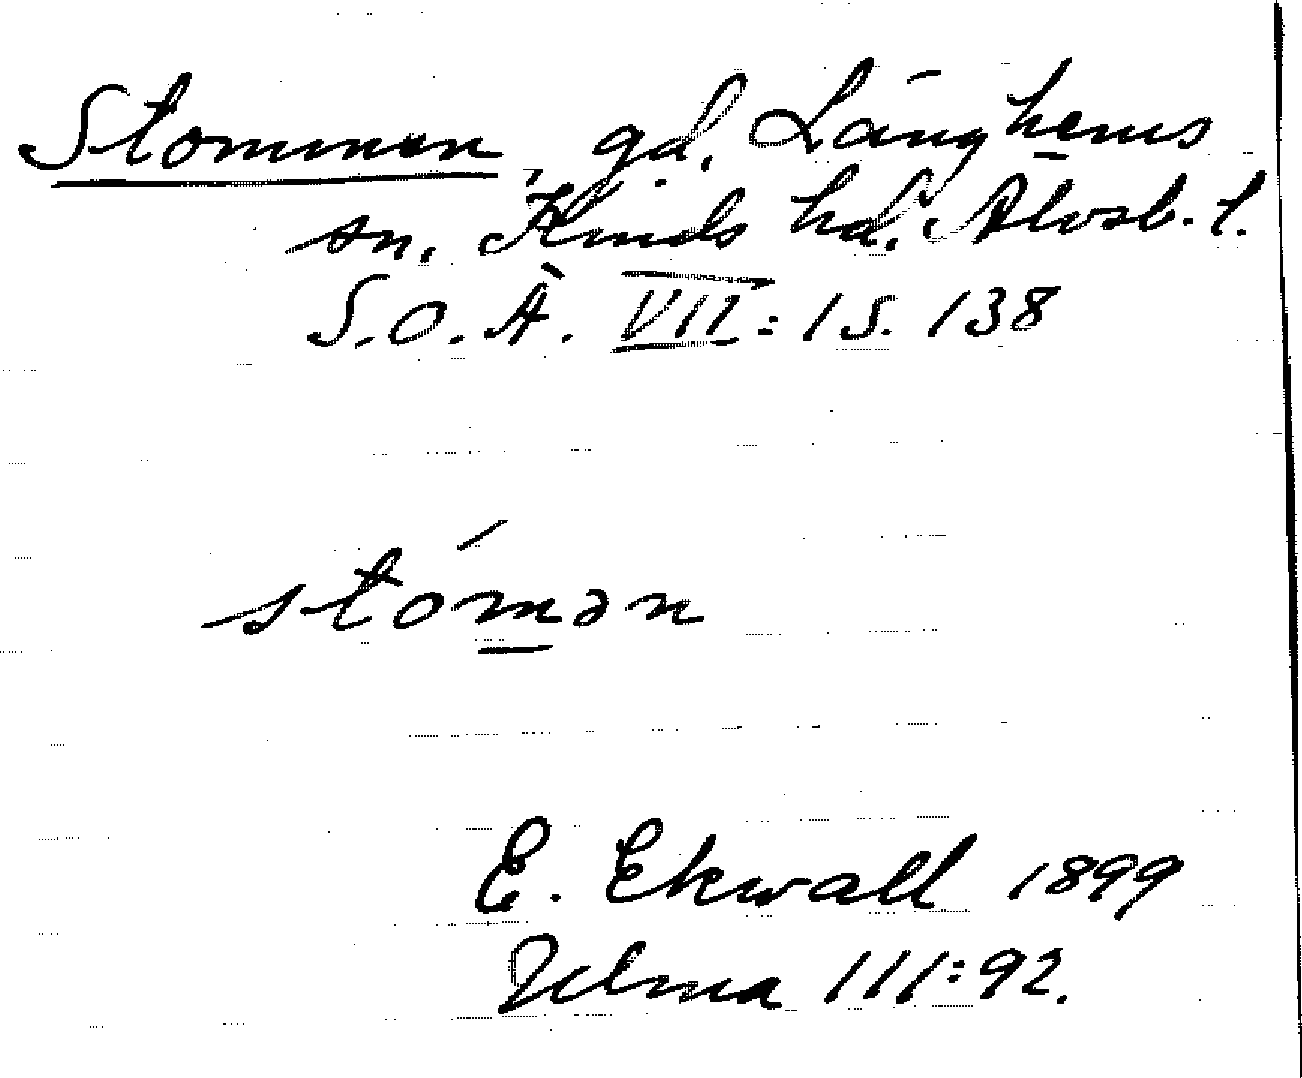 Stommen, gd. Länghems
sn. Kinds hd. Älvsb. l.
S.O.Ä. VII:1 S. 138
stómən
E. Ekwall 1899
Ulma 111:92.